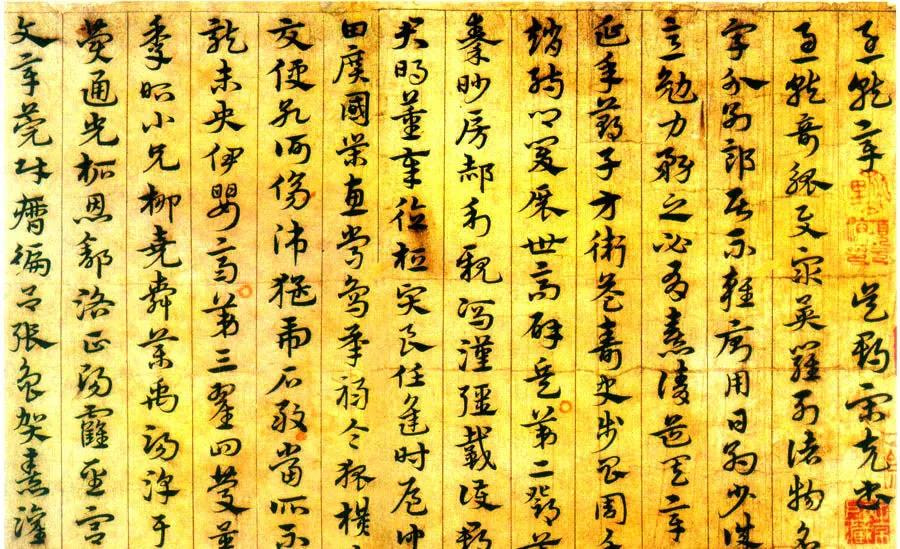 急就章 吳郡宋克書
急就奇觚與衆異羅列諸物名
字分別部居不雜廁用日約少誠
意勉力務之必有憙請道其章
延年鄭子方衛益壽史步昌周千
趙孺卿爰展世高辟兵第二鄧萬
秦眇房郝利親馮漢彊戴護郡
君明董奉德桓賢良任逢時侯仲
田廣國榮惠常烏承祿令狐橫
交便孔何傷師猛虎石敢當所不
龍未央伊嬰齊第三翟回慶畢
季昭小兄柳堯舜藥禹湯淳于
費通光柘恩舒路正陽霍聖宮
文章莞財歷偏呂張魚賀憙灌